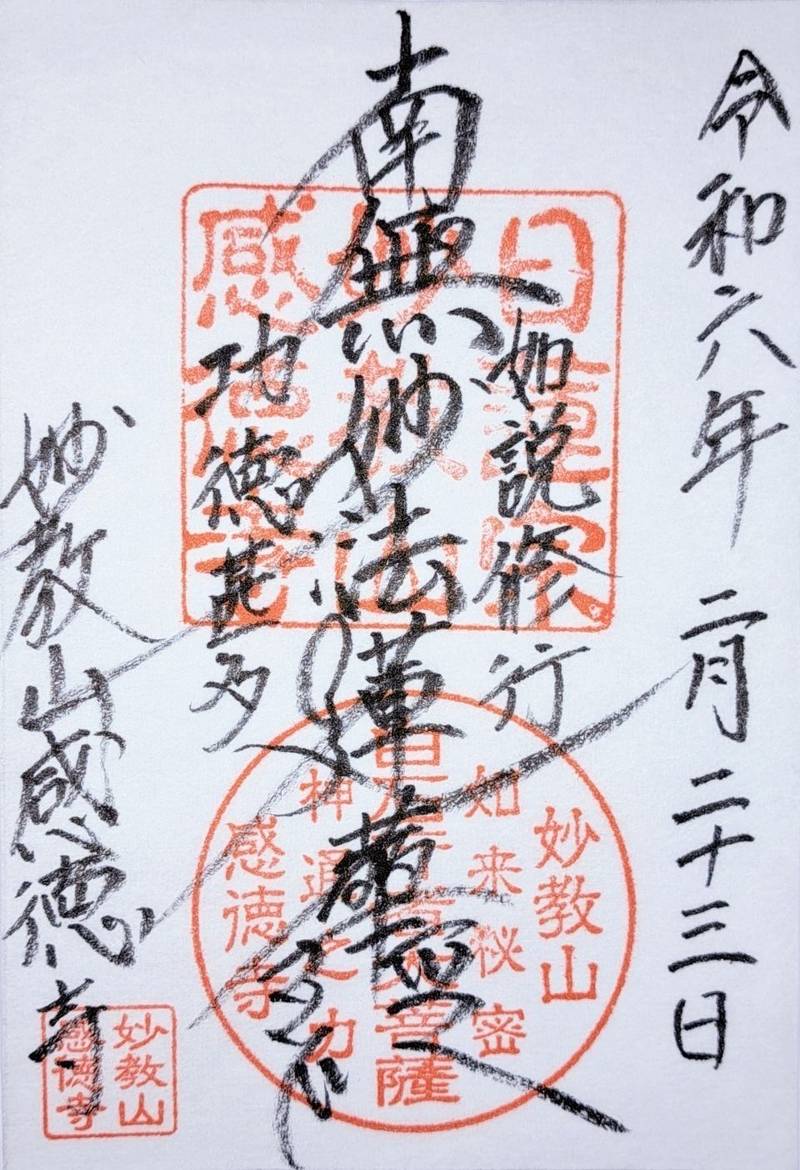 令和六年 二月二十三日
如説修行
南無妙法蓮華経
功徳甚多
妙教山感徳寺
日蓮宗
妙教山
感徳寺
妙教山
如来秘密
菩薩
神通之力
感徳寺
妙教山
感徳寺